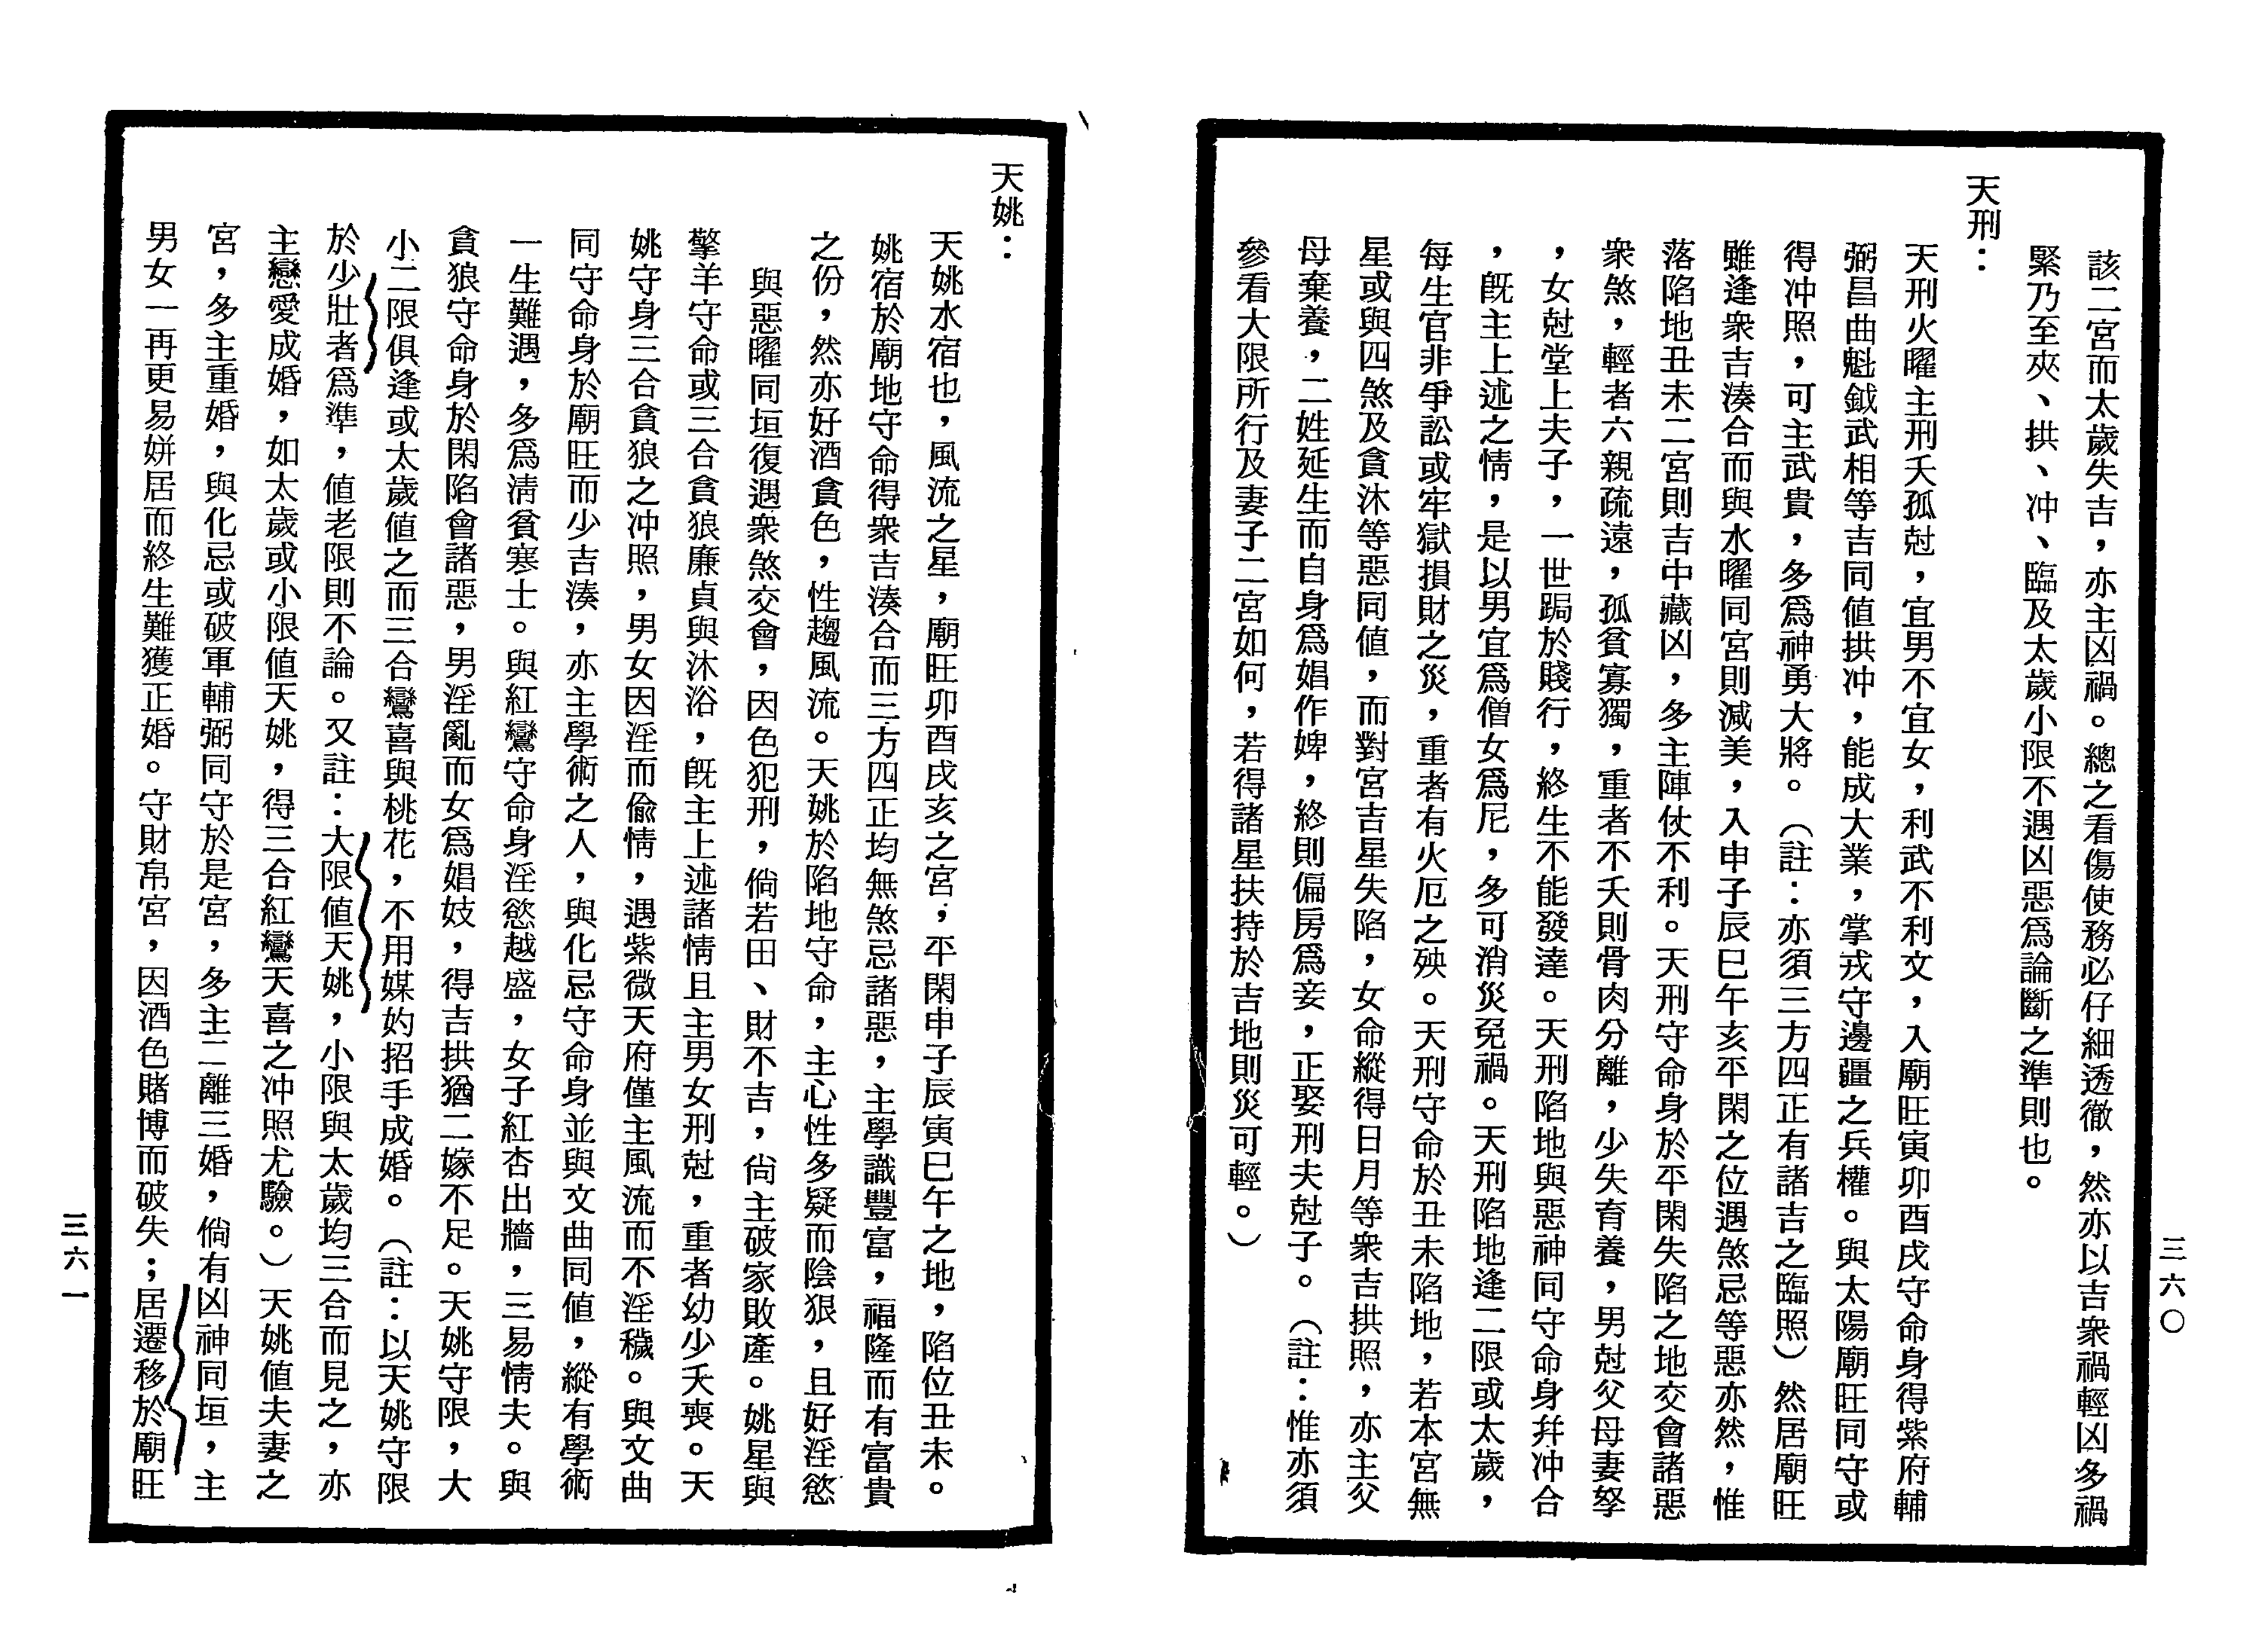 三六〇
該二宮而太歲失吉，亦主凶禍。總之看傷使務必仔細透徹，然亦以吉衆禍輕凶多禍
緊乃至夾、拱、冲、臨及太歲小限不遇凶惡爲論斷之準則也。
天刑：
天刑火曜主刑夭孤尅，宜男不宜女，利武不利文，入廟旺寅卯酉戌守命身得紫府輔
弼昌曲魁鉞武相等吉同值拱冲，能成大業，掌戎守邊疆之兵權。與太陽廟旺同守或
得冲照，可主武貴，多爲神勇大將。（註：亦須三方四正有諸吉之臨照）然居廟旺
雖逢衆吉湊合而與水曜同宮則減美，入申子辰巳午亥平閑之位遇煞忌等惡亦然，惟
落陷地丑未二宮則吉中藏凶，多主陣仗不利。天刑守命身於平閑失陷之地交會諸惡
衆煞，輕者六親疏遠，孤貧寡獨，重者不夭則骨肉分離，少失育養，男尅父母妻孥
，女尅堂上夫子，一世跼於賤行，終生不能發達。天刑陷地與惡神同守命身幷冲合
，旣主上述之情，是以男宜爲僧女爲尼，多可消災免禍。天刑陷地逢二限或太歲，
每生官非爭訟或牢獄損財之災，重者有火厄之殃。天刑守命於丑未陷地，若本宮無
星或與四煞及貪沐等惡同值，而對宮吉星失陷，女命縱得日月等衆吉拱照，亦主父
母棄養，二姓延生而自身爲娼作婢，終則偏房爲妾，正娶刑夫尅子。（註：惟亦須
參看大限所行及妻子二宮如何，若得諸星扶持於吉地則災可輕。）
天姚：
天姚水宿也，風流之星，廟旺卯酉戌亥之宮，平閑申子辰寅巳午之地，陷位丑未。
姚宿於廟地守命得衆吉湊合而三方四正均無煞忌諸惡，主學識豐富，福隆而有富貴
之份，然亦好酒貪色，性趨風流。天姚於陷地守命，主心性多疑而陰狠，且好淫慾
與惡曜同垣復遇衆煞交會，因色犯刑，倘若田、財不吉，尙主破家敗產。姚星與
擎羊守命或三合貪狼廉貞與沐浴，旣主上述諸情且主男女刑尅，重者幼少夭喪。天
姚守身三合貪狼之冲照，男女因淫而偸情，遇紫微天府僅主風流而不淫穢。與文曲
同守命身於廟旺而少吉湊，亦主學術之人，與化忌守命身並與文曲同值，縱有學術
一生難遇，多爲淸貧寒士。與紅鸞守命身淫慾越盛，女子紅杏出牆，三易情夫。與
貪狼守命身於閑陷會諸惡，男淫亂而女爲娼妓，得吉拱猶二嫁不足。天姚守限，大
小二限俱逢或太歲値之而三合鸞喜與桃花，不用媒妁招手成婚。（註：以天姚守限
於少壯者爲準，值老限則不論。又註：大限值天姚，小限與太歲均三合而見之，亦
主戀愛成婚，如太歲或小限值天姚，得三合紅鸞天喜之冲照尤驗。）天姚值夫妻之
宮，多主重婚，與化忌或破軍輔弼同守於是宮，多主二離三婚，倘有凶神同垣，主
男女一再更易姘居而終生難獲正婚。守財帛宮，因酒色賭博而破失；居遷移於廟旺
三六一